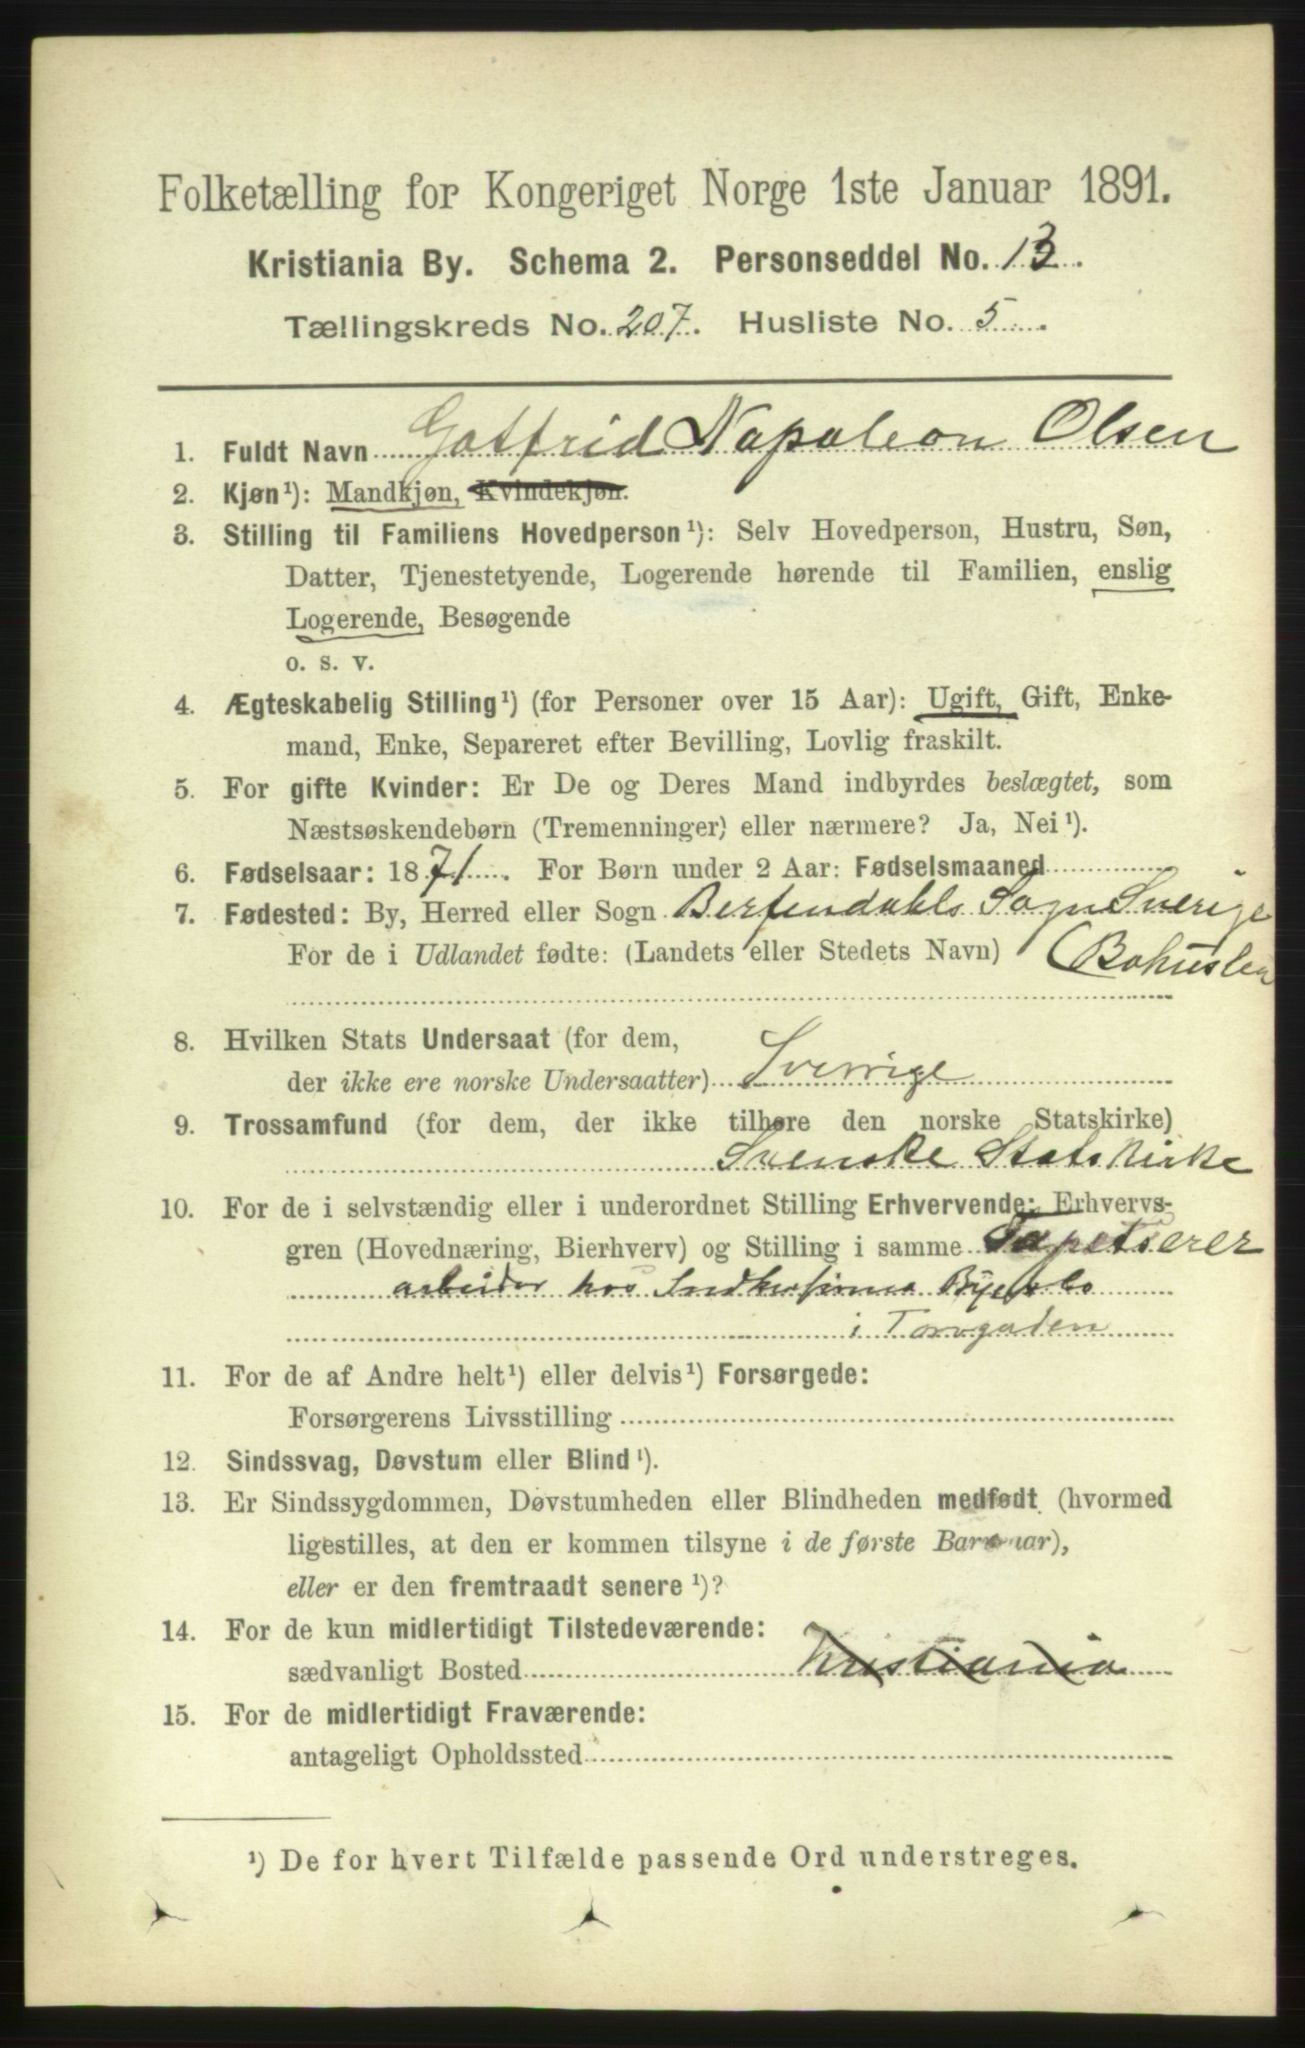 Folketælling for Kongeriget Norge 1ste Januar 1891.
Kristiania By. Schema 2. Personseddel No. 13.
Tællingskreds No. 207. Husliste No. 5.
1. Fuldt Navn Gotfrid Napoleon Olsen
2. Kjøn¹): Mandkjøn, Kvindekjøn.
3. Stilling til Familiens Hovedperson¹): Selv Hovedperson, Hustru, Søn,
Datter, Tjenestetyende, Logerende hørende til Familien, enslig
Logerende, Besøgende
o. s. v.
4. Ægteskabelig Stilling¹) (for Personer over 15 Aar): Ugift, Gift, Enke-
mand, Enke, Separeret efter Bevilling, Lovlig fraskilt.
5. For gifte Kvinder: Er De og Deres Mand indbyrdes beslægtet, som
Næstsøskendebørn (Tremenninger) eller nærmere? Ja, Nei¹).
6. Fødselsaar: 1871. For Børn under 2 Aar: Fødselsmaaned
7. Fødested: By, Herred eller Sogn Berfendahls Sogn Sverige
For de i Udlandet fødte: (Landets eller Stedets Navn) (Bohuslen
8. Hvilken Stats Undersaat (for dem,
der ikke ere norske Undersaatter) Sverrige
9. Trossamfund (for dem, der ikke tilhøre den norske Statskirke)
Svenske Statskirke
10. For de i selvstændig eller i underordnet Stilling Erhvervende: Erhvervs-
gren (Hovednæring, Bierhverv) og Stilling i samme Tapetserer
arbeider hos
i Torvgaden
11. For de af Andre helt¹) eller delvis¹) Forsørgede:
Forsørgerens Livsstilling
12. Sindssvag, Døvstum eller Blind¹).
13. Er Sindssygdommen, Døvstumheden eller Blindheden medfødt (hvormed
ligestilles, at den er kommen tilsyne i de første Barneaar),
eller er den fremtraadt senere¹)?
14. For de kun midlertidigt Tilstedeværende:
sædvanligt Bosted Kristiania
15. For de midlertidigt Fraværende:
antageligt Opholdssted
¹) De for hvert Tilfælde passende Ord understreges.